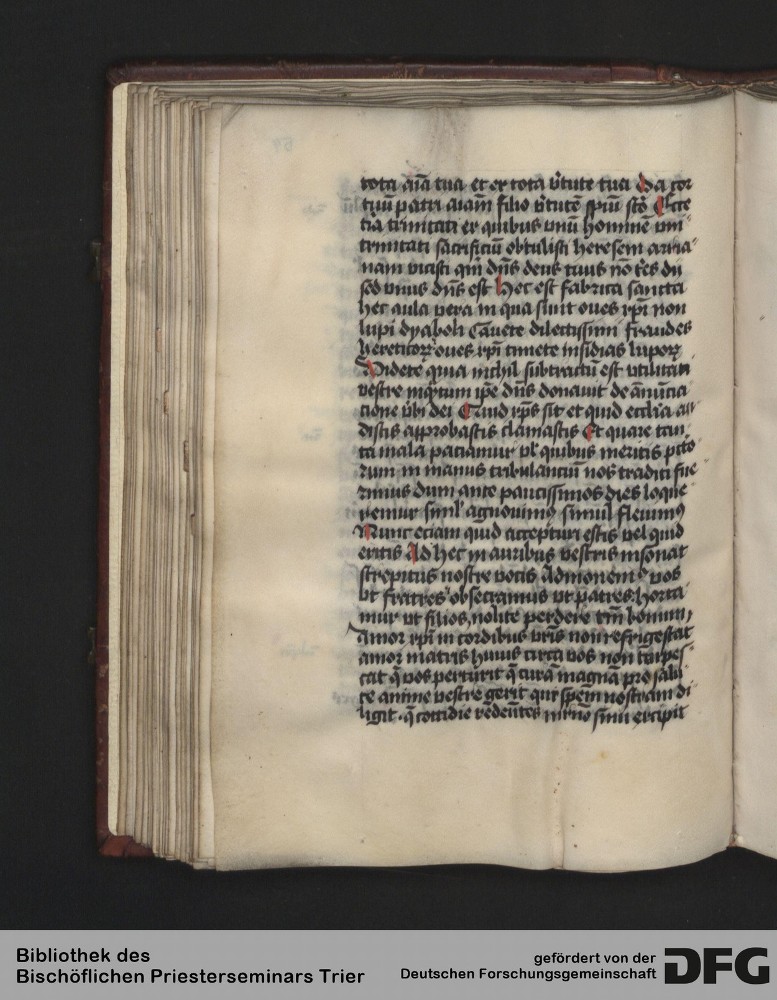 tota aīa tua et ex tota v̾tute tua Da cor
tuū patri aīam filio v̾tutē spiū scō Ecce
tria trinitati ex quibus vnū hominē vni
trinitati sacrificiū obtulisti heresem arria
nam vicisti qm̄ dn̄s deus tuus nō tres dii
sed vnus dn̄s est Hec est fabrica sancta
hec aula vera in qua sunt oues xp̄i non
lupi dyaboli Cauete dilectissimi fraudes
hereticoꝝ oues xp̄i timete insidias lupoꝝ
Videte quia nichil subtractū est vtilitati
vestre ip̄e dn̄s donauit de ānūcia
cione v̾bi dei Quid xp̄s sit et quid ecclīa au
distis approbastis clamastis Et quare tan
ta mala patiamur vl̾ quibus meritis pcto
rum in manus tribulanciū nos traditi fue
rimus dum ante paucissimos dies loque
remur siml̾ agnouimꝰ simul fleuimꝰ
Nunc eciam quid accepturi estis vel quid
eritis Ad hec in auribus vestris insonat
strepitus nostre vocis Admonemꝰ vos
vt fratres obsecramus vt patres horta
mur vt filios nolite perdere tm̄ bonum
amor xp̄i in cordibus vr̄is non refrigescat
amor matris huius circa vos non torpes
cat q̄ vos perturit q̄ curā magnā pro salu
te anime vestre gerit que spem nostram di
ligit q̄ cottidie redeūtes sinu excipit
Bibliothek des
Bischöflichen Priesterseminars Trier
gefördert von der
Deutschen Forschungsgemeinschaft
DFG